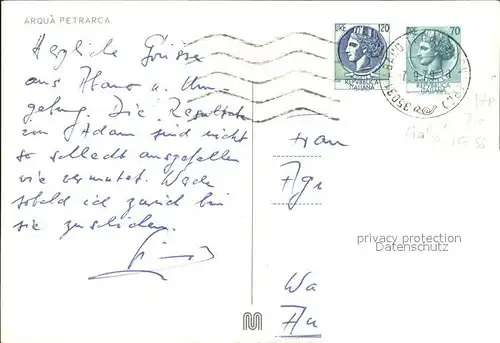 ARQUÀ PETRARCA
Herzliche Grüsse
aus Abano u. Um-
gebung. Die Resultate
von Adam sind nicht
so schlecht ausgefallen
wie vermutet. Werde
sobald ich zurück bin
sie zuschicken.
LIRE 120
REPVBBLICA
ITALIANA
LIRE 70
REPVBBLICA
ITALIANA
35031
Frau
Agr
privacy protection
Datenschutz
Wa
Au